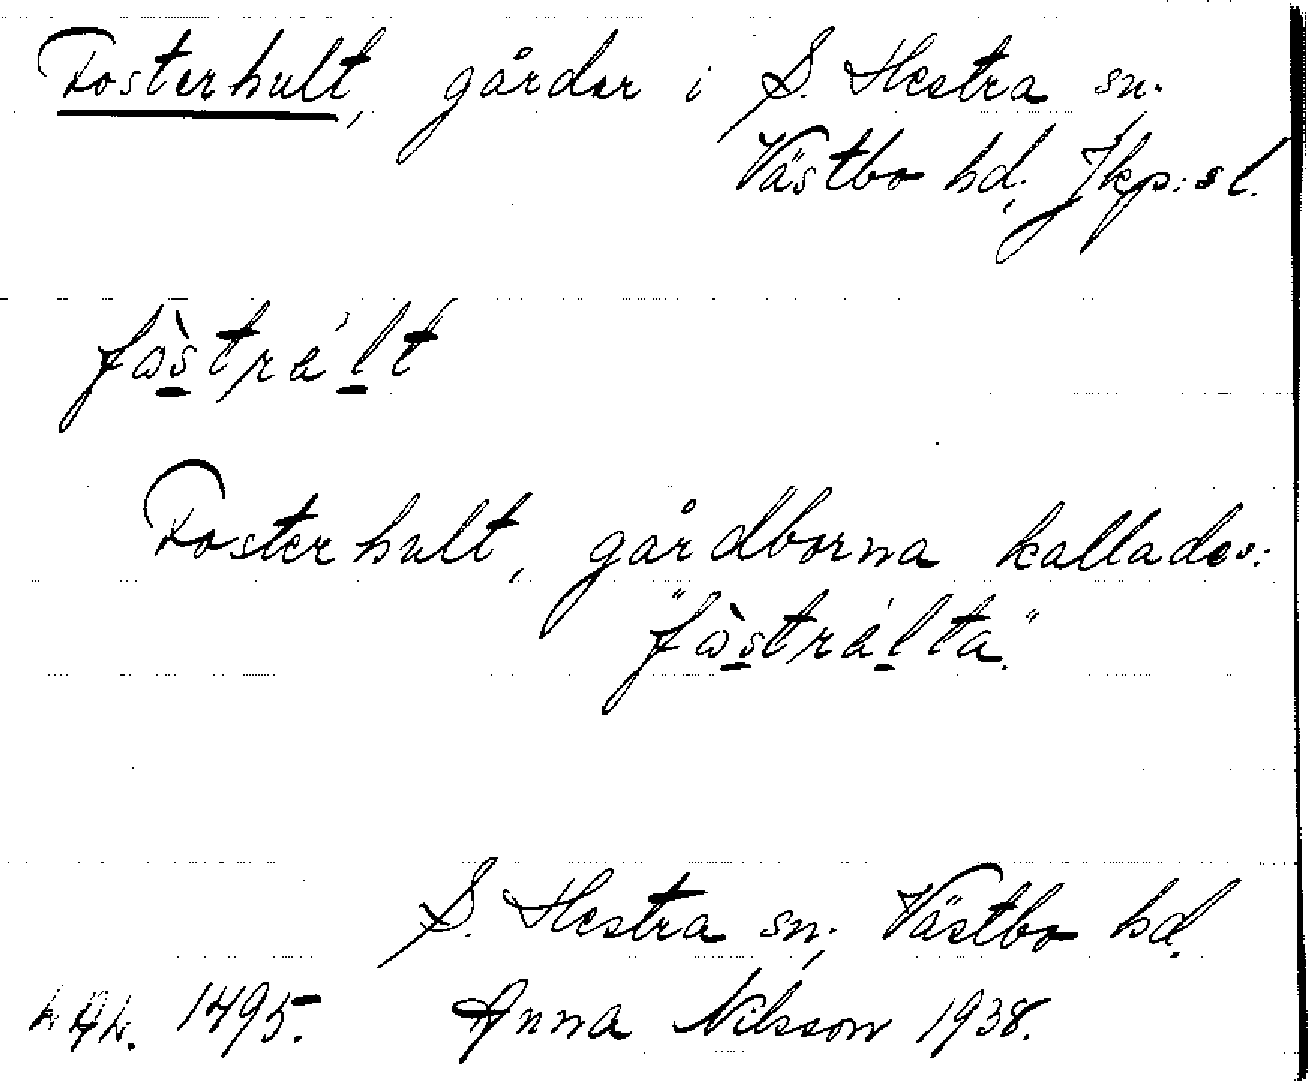 Fosterhult, gårdar i S. Hestra sn.
Västbo hd, Jkp:s l.
fòstrált
Fosterhult, gårdborna kallades:
"fòstrálta."
S. Hestra sn, Västbo hd.
1495. Anna Nilsson 1938.